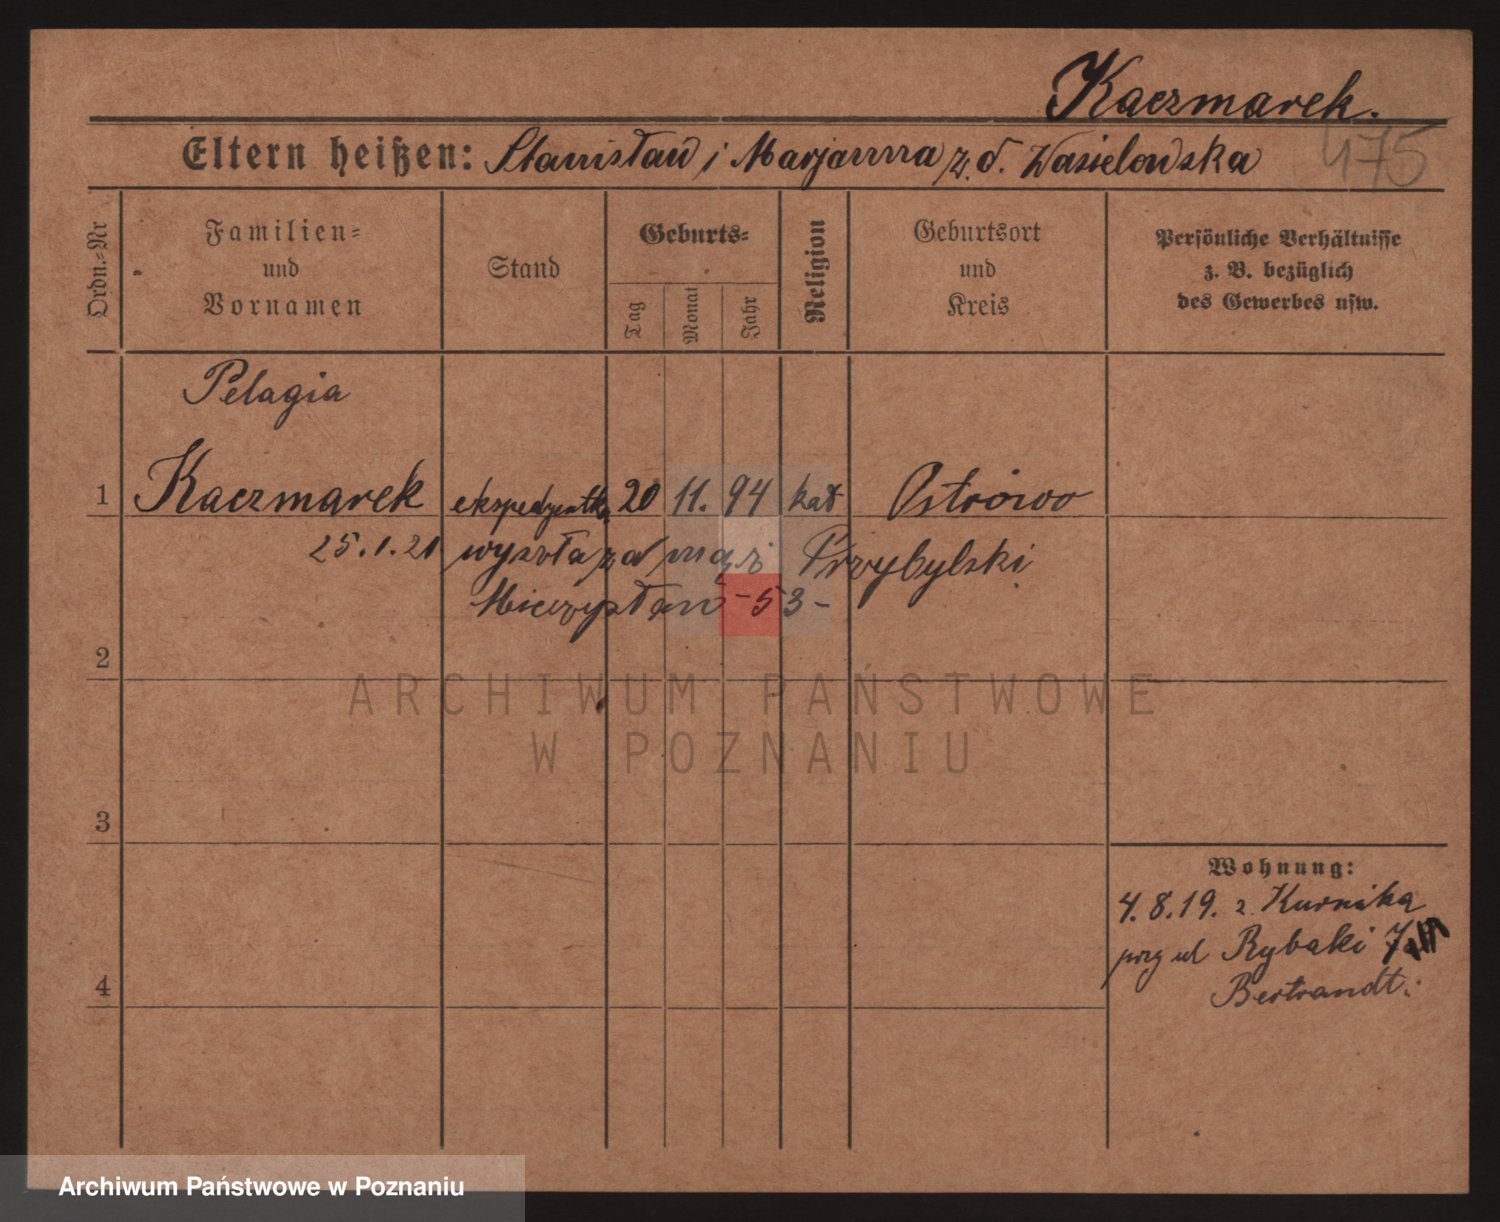 Kaczmarek.
475
Eltern heißen: Stanisław i Marjanna z. d. Wasielewska
Ordn.-Nr
Familien-
und
Vornamen
Stand
Geburts-
Tag
Monat
Jahr
Religion
Geburtsort
und
Kreis
Persönliche Verhältnisse
z. B. bezüglich
des Gewerbes usw.
Pelagia
1 Kaczmarek ekspedyentka 20 11. 94 kat Ostrówo
25.1.21 wyszła za mąż Przybylski
Mieczysław -53-
2
ARCHIWUM PAŃSTWOWE
W POZNANIU
3
Wohnung:
4.8.19. z Kurnika
przy ul Rybaki 7
4
Bertrandt.
Archiwum Państwowe w Poznaniu